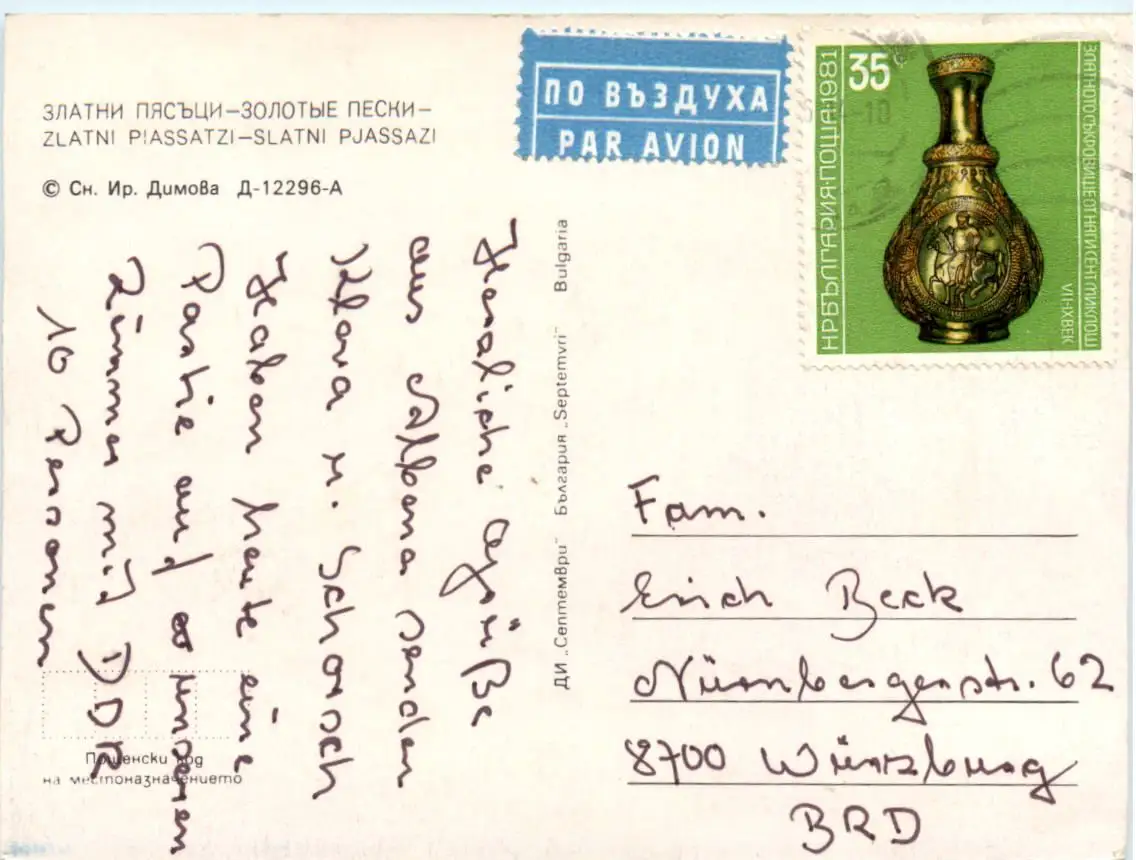 ЗЛАТНИ ПЯСЪЦИ–ЗОЛОТЫЕ ПЕСКИ–
ZLATNI PIASSATZI–SLATNI PJASSAZI
© Сн. Ир. Димова Д-12296-А
ПО ВЪЗДУХА
PAR AVION
35
НР БЪЛГАРИЯ·ПОЩА·1981
ЗЛАТНОТО СЪКРОВИЩЕ ОТ НАГИ СЕНТ МИКЛОШ
VII-IX ВЕК
Herzliche Grüße
aus Albena senden
Klara u. Schorsch
Haben heute eine
Partie auf unserem
Zimmer mit DDR
10 Personen
ДИ „Септември" България „Septemvri" Bulgaria
Fam.
Erich Beck
Nürnbergerstr. 62
8700 Würzburg
BRD
Пощенски код
на местоназначението